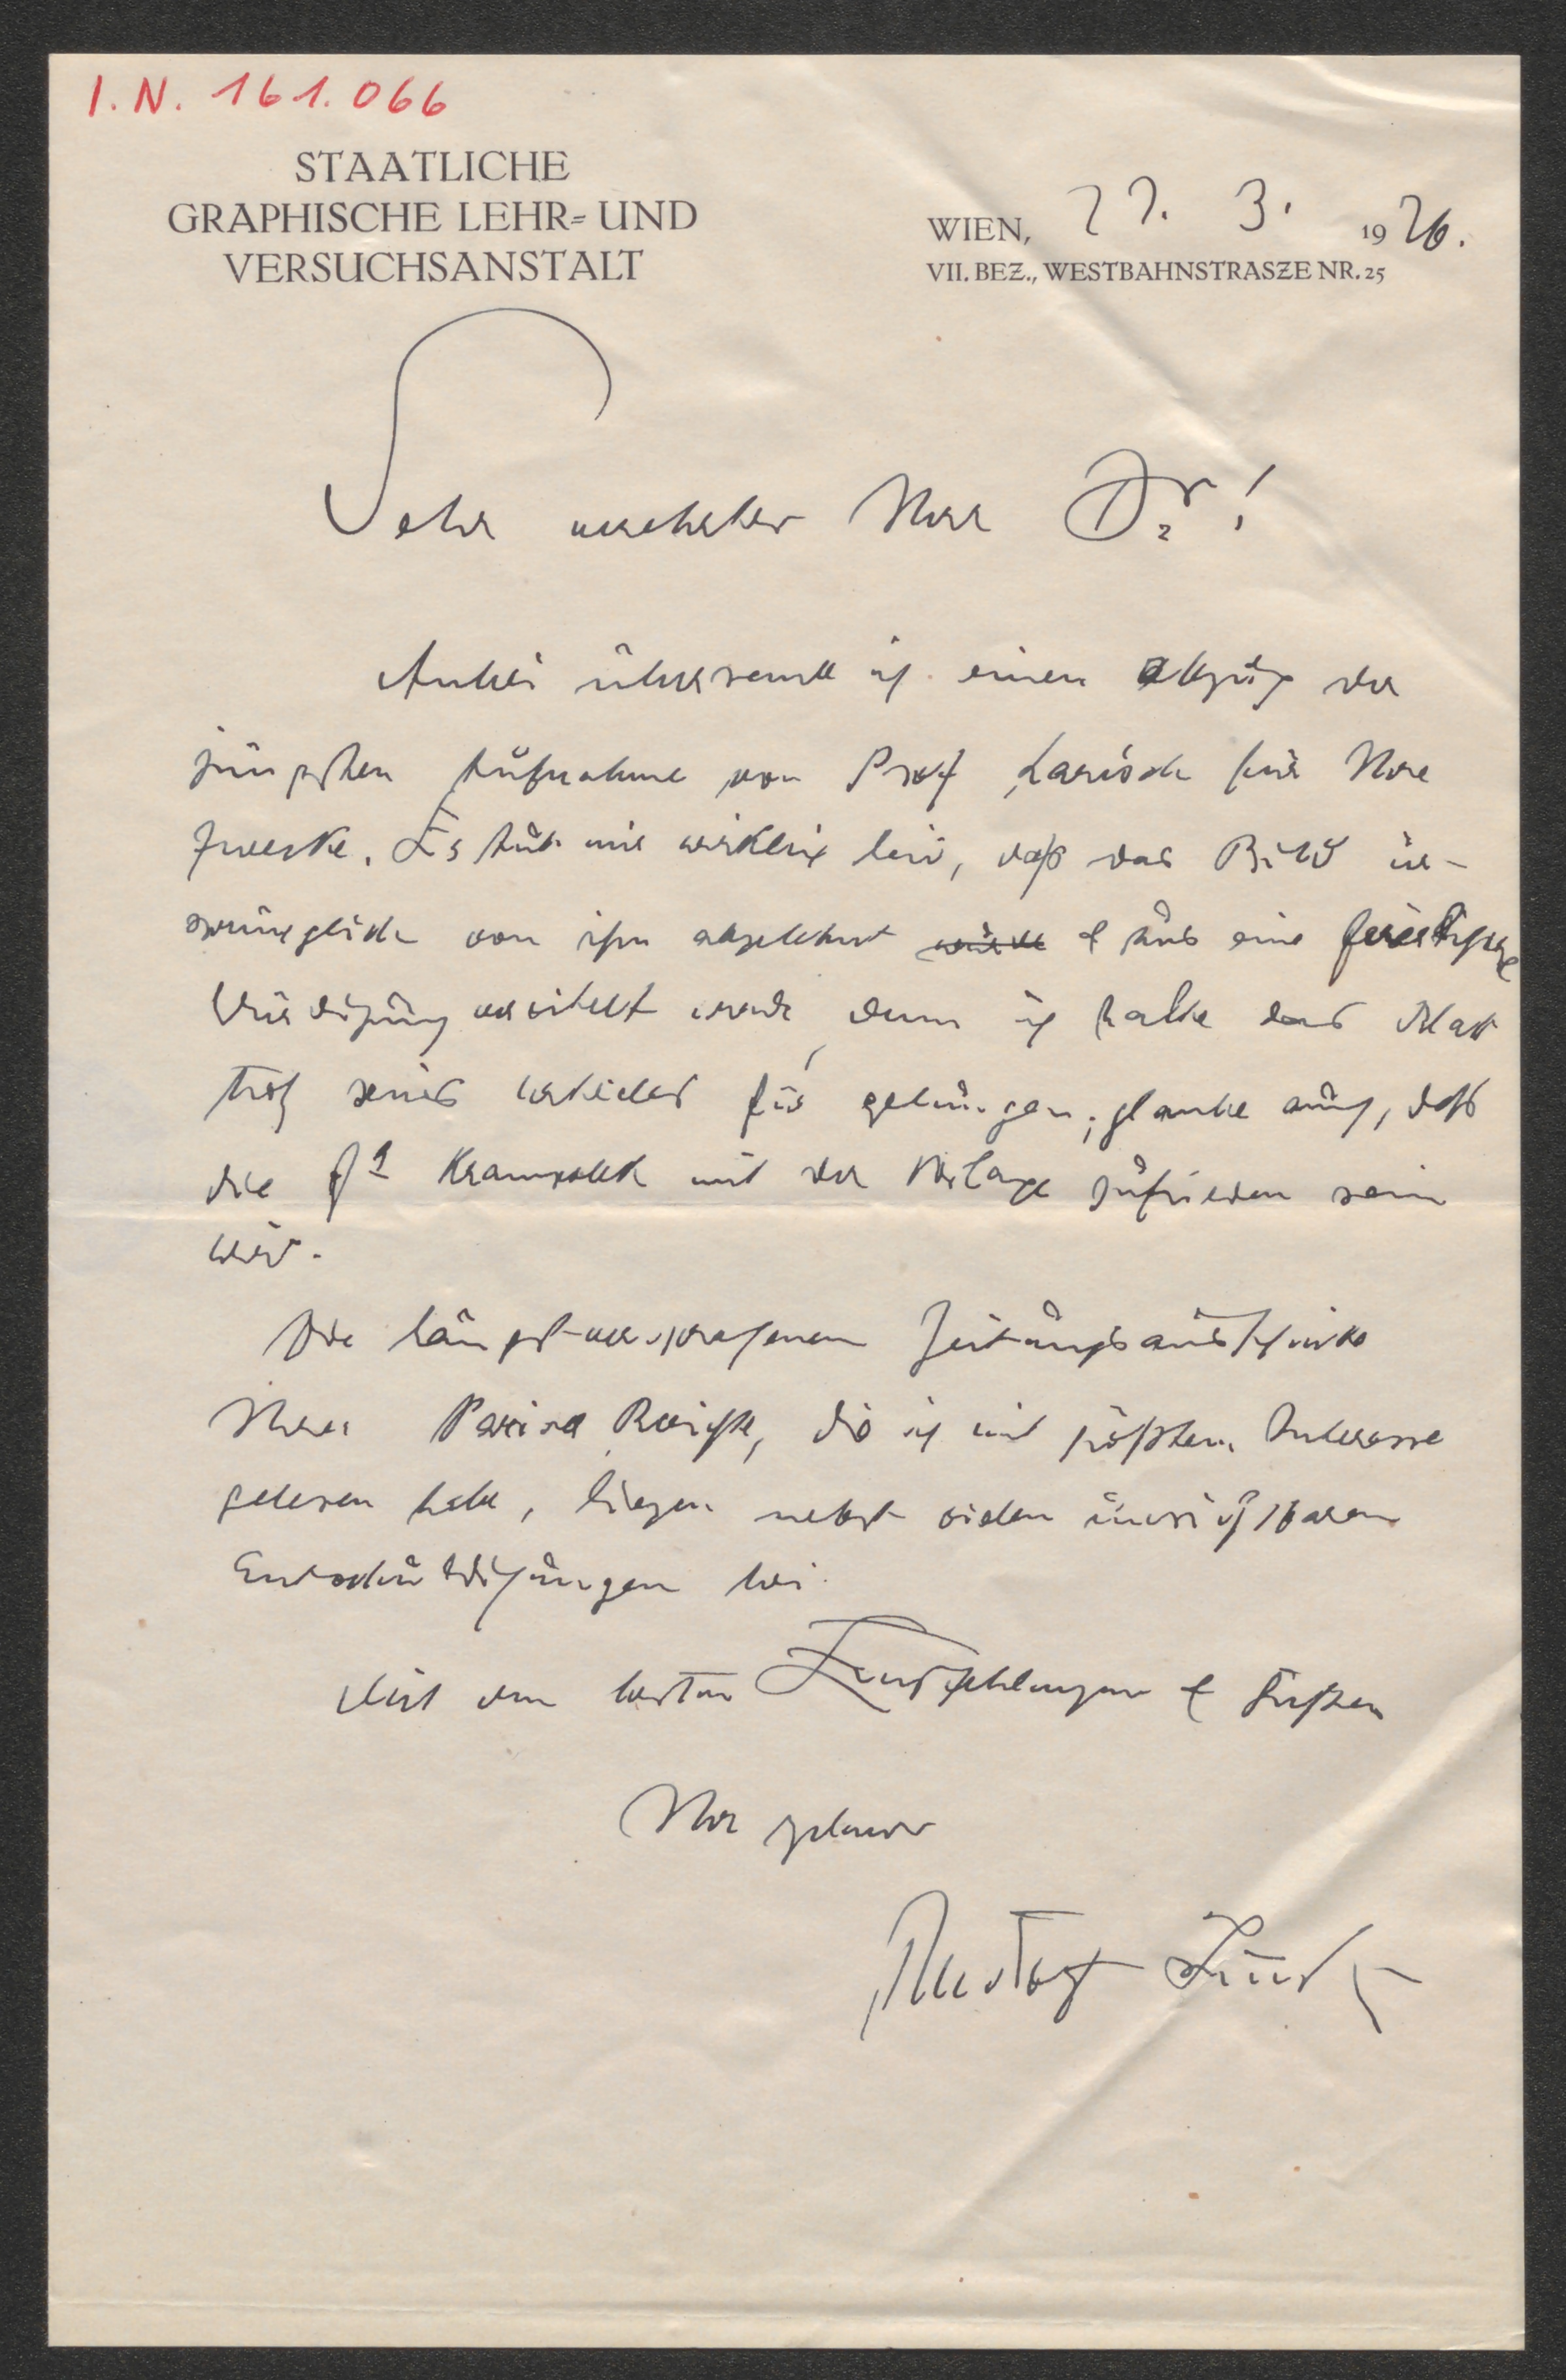 I. N. 161.066
STAATLICHE
GRAPHISCHE LEHR= UND
VERSUCHSANSTALT
WIEN, 27. 3. 1926.
VII. BEZ., WESTBAHNSTRASZE NR. 25
Sehr verehrter Herr Dr!
Anbei übersende ich einen Abzug der
jüngsten Aufnahme von Prof Larisch für Ihre
Zwecke. Es tut mir wirklich leid, daß das Bild ur-
sprünglich von ihm abgelehnt wurde & uns eine
Würdigung vereitelt wurde, denn ich halte das Blatt
trotz seines für gelungen; glaube auch, daß
die Fa Krampolek mit der Vorlage zufrieden sein
wird.
Die längst versprochenen Zeitungsausschnitte
Ihrer Pariser Berichte, die ich mit größtem Interesse
gelesen habe, liegen nebst vielen unsichtbaren
Entschuldigungen bei.
Mit den besten Empfehlungen & Grüßen
Ihr
Rudolf